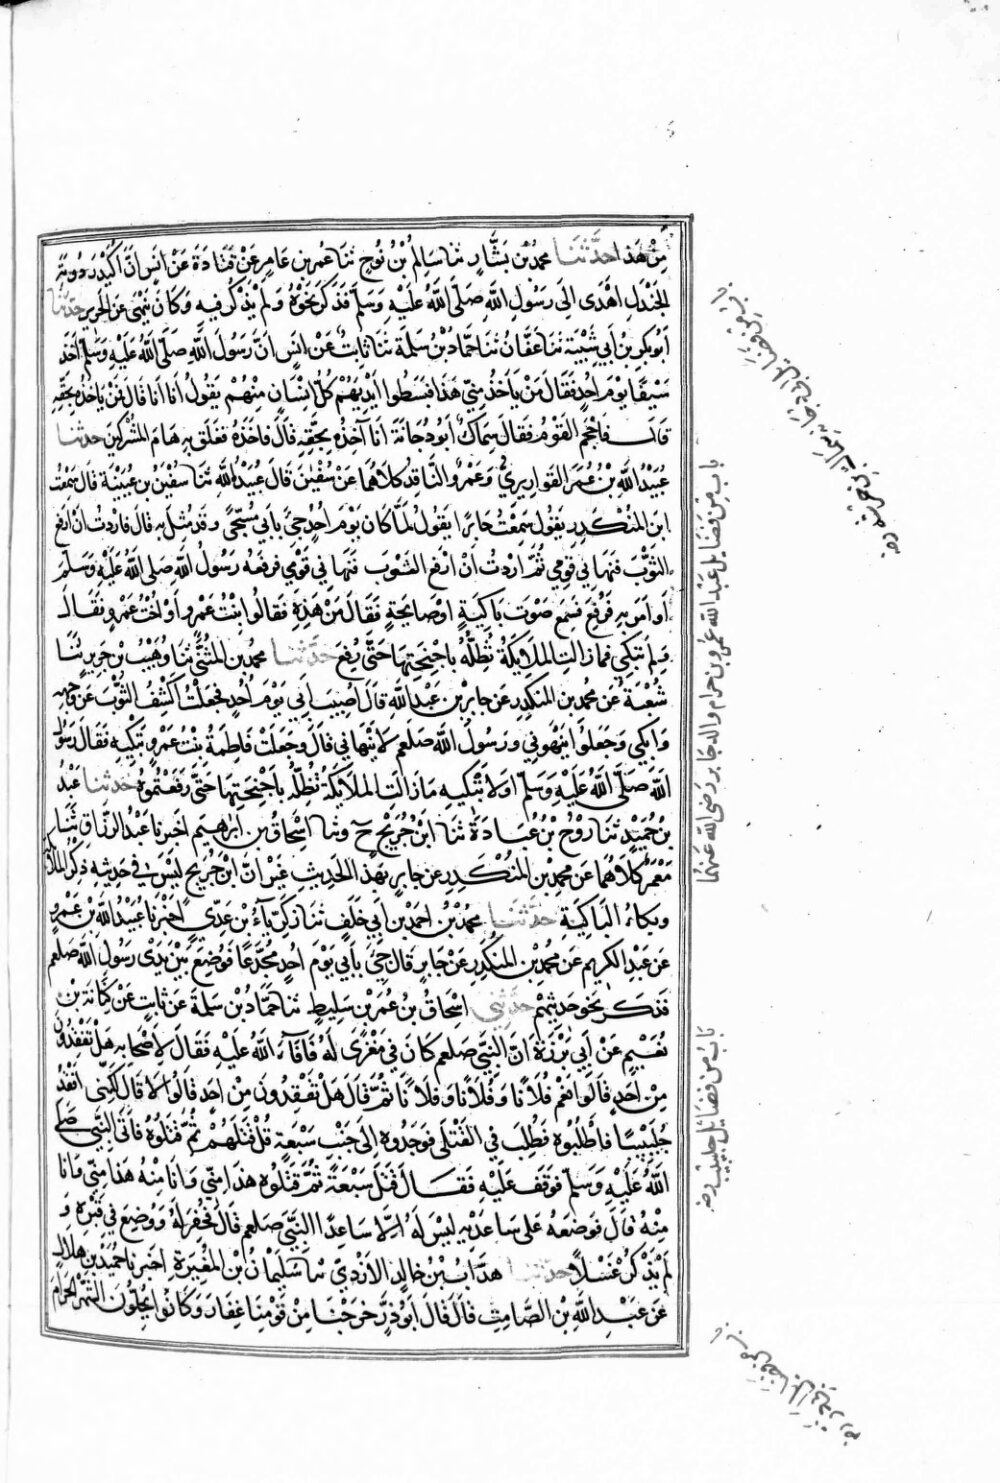 مِنْ هَذَا حَدَّثَنَا مُحَمَّدُ بْنُ بَشَّارٍ ثَنَا سَالِمُ بْنُ نُوحٍ ثَنَا عُمَر بن عَامِرٍ عَنْ قَتَادَةَ عَنْ أَنَسٍ أَنَّ أُكَيْدِرَ دُومَةِ
الجَنْدَلِ اهْدَى الَى رَسُولِ اللَّهِ صَلَّى اللَّهُ عَلَيْهِ وَسَلَّمَ فَذَكَرَ نَحْوَهُ وَلَمْ يَذْكُر فِيهِ وَكَانَ يَنْهَى عَنِ الحَرِيرِ حَدثنا
أَبُو بَكْرِ بْنُ أَبِي شَيْبَةَ ثَنَا عَفَّانُ ثَنَا حَمَّادُ بْنُ سَلَمَةَ ثَنَا ثَابِتٌ عَنْ انَسٍ انَّ رَسُولَ اللَّهِ صَلَّى اللَّهُ عَلَيْهِ وَسَلَّمَ أَخَذَ
سَيْفًا يَوْمَ احُدٍ فَقَالَ مَنْ يَأْخُذُ مِنِّي هَذَا فَبَسَطُوا أَيْدِيَهُمْ كُلُّ انْسَانٍ مِنْهُمْ يَقُولُ أَنَا أَنَا قَالَ فَمَنْ يَاخُذُهُ بِحَقِّهِ
قَالَ فَاحْجَمَ القَوْمُ فَقَالَ سِمَاكٌ أَبُو دُجَانَةَ أَنَا آخُذُهُ بِحَقِّهِ قَالَ فَاخَذَهُ فَفَلَقَ بِهِ هَامَ المُشْرِكِينَ حدثنا
عُبَيْدُ اللَّهِ بْنُ عُمَرَ القَوَارِيرِيُّ وَعَمْرٌو النَّاقِدُ كِلَاهُمَا عَنْ سُفْيَنَ قَالَ عُبَيْدُ اللَّهِ ثَنَا سُفْيَنُ بْنُ عُيَيْنَةَ قَالَ سَمِعْتُ
ابْنَ المُنْكَدِرِ يَقُولُ سَمِعْتُ جَابِرًا يَقُولُ لَمَّا كَانَ يَوْمَ أُحُدٍ جِئَ بِأَبِي مُسَجًّى وَقَد مُثِلَ بِهِ قَالَ فَارَدْتُ انْ ارْفَعَ
الثَّوْبَ فَنَهَانِي قَوْمِي ثُمَّ ارَدْتُ أَنْ ارْفَعَ الثَّوْبَ فَنَهَانِي قَوْمِي فَرَفَعَهُ رَسُولُ اللَّهِ صَلَى اللَّهُ عَلَيْهِ وَسَلَّمَ
أَو امَرَ بِهِ فَرُفِعَ فَسَمِعَ صَوْتَ بَاكِيَةٍ اوْ صَايِحَةٍ فَقَالَ مَنْ هَذِهِ فَقَالُوا بِنْتُ عَمْرٍو أَوْ اخْتُ عَمْرٍو فَقَالَ
وَلِمَ تَبْكِي فَمَا زَالَتِ المَلَايِكَةُ تُظِلُّهُ بِاجْنِحَتِهَا حَتَّى رُفِعَ حَدَّثَنَا مُحَمَّدُ بن المُثَنَّى ثَنَا وَهْبُ بْنُ جَرِيرٍ ثَنَا
شُعْبَةُ عَنْ مُحَمَّدِ بنِ المُنْكَدِرِ عَن جَابِرِ بْنِ عَبْدِ اللَّهِ قَالَ اصِيبَ ابِي يَوْمَ احُدٍ فَجَعَلْتُ اكْشِفُ الثَّوْبَ عَنْ وَجْهِهِ
وَابْكِي وَجَعَلُوا يَنْهَوْنِي وَرَسُولُ اللَّهِ صلعم لَا يَنْهَانِي قَالَ وَجَعَلَتْ فَاطِمَةُ بِنْتُ عَمْرٍو تَبْكِيهِ فَقَالَ رَسُولُ
اللَّهِ صَلَّى اللَّهُ عَلَيْهِ وَسَلَّمَ اوَلَا تَبْكِيهِ مَا زَالَتِ المَلَايِكَةُ تُظِلُّهُ بِأَجْنِحَتِهَا حَتَّى رَفَعْتُمُوهُ حَدثنا عَبْدُ
بْنُ حُمَيْدٍ ثَنَا رَوْحُ بْنُ عُبَادَةَ ثَنَا ابْنُ جُرَيْجٍ ح وثنا اسْحَاقُ بن ابْرَهِيمَ اخبرنا عَبْدُ الرَّزَّاقِ ثَنَا
مَعْمَرٌ كِلَاهُمَا عَن مُحَمَّدِ بْنِ المُنْكَدِرِ عن جَابِرٍ بِهَذَا الحَدِيثِ غَيْرَ انَّ ابْنَ جُرَيْجٍ لَيْسَ فِي حَدِيثِهِ ذِكْرُ المَلَايكَةِ
وَبُكَاءُ البَاكِيَةِ حَدَّثَنَا مُحَمَّدُ بْنُ احْمَدَ بْنِ أَبِي خَلَفٍ ثَنَا زَكَرِيَّاءُ بْنُ عَدِيٍّ اخْبَرَنَا عُبَيْدُ اللَّهِ بْنُ عَمْرٍو
عَنْ عَبْدِ الكَرِيمِ عَنْ مُحَمَّدِ بْنِ المُنْكَدِرِ عَنْ جَابِرٍ قَالَ جِئَ بِأَبِي يَوْمَ احُدٍ مُجَدَّعًا فَوُضِعَ بَيْنَ يَدَيْ رَسُولِ اللَّهِ صلعم
فَذَكَرَ نَحْوَ حَدِيثِهِمْ حَدَّثَنِي اسْحَاقُ بْنُ عُمَرَ بْنِ سَلِيطٍ ثَنَا حَمَّادُ بْنُ سَلَمَةَ عَنْ ثَابِتٍ عَنْ كِنَانَةَ بْنِ
نُعَيْمٍ عَنْ أَبِي بَرْزَةَ انَّ النَّبِيَّ صلعم كَانَ فِي مَغْزًى لَهُ فَافَآءَ اللَّهُ عَلَيْهِ فَقَالَ لِاصْحَابِهِ هَلْ تَفْقِدُونَ
مِنْ احَدٍ قَالُوا نَعَمْ فُلَانًا وَفُلَانًا وَفُلَانًا ثُمَّ قَالَ هَلْ تَفْقِدُونَ مِنْ احَدٍ قَالُوا لَا قَالَ لَكِنِّى افْقِدُ
جُلَيْبِيبًا فَاطْلُبُوهُ فَطُلِبَ فِي القَتْلَى فَوَجَدُوهُ الَى جَنْبِ سَبْعَةٍ قَدْ قَتَلَهُمْ ثُمَّ قَتَلُوهُ فَاتَى النَّبِيُّ صلى
اللَّهُ عَلَيْهِ وَسَلَّمَ فَوَقَفَ عَلَيْهِ فَقَالَ قَتَلَ سَبْعَةً ثُمَّ قَتَلُوهُ هَذَا مِنِّي وَانَا مِنْهُ هَذَا مِنِّي وَانَا
مِنْهُ قَالَ فَوَضَعَهُ عَلَى سَاعِدَيْهِ لَيْسَ لَهُ الَّا سَاعِدَا النَّبِيِّ صلعم قَالَ فَحُفِرَ لَهُ وَوُضِعَ فِي قَبْرِهِ وَ
لَمْ يَذْكُرْ غَسْلًا حَدثنا هَدَّابُ بْنُ خَالِدٍ الازْدِيُّ ثنا سُلَيْمَانُ بْنُ المُغِيرَةِ اخبرنا حُمَيْدُ بْنُ هِلَالٍ
عَنْ عَبْدِ اللَّهِ بْنِ الصَّامِتِ قَالَ قَالَ أَبُو ذَرٍّ خَرَجْنَا مِنْ قَوْمِنَا غِفَارَ وَكَانُوا يُحِلُّونَ الشَّهْرَ الحَرَامَ
باب مِن فَضَايل عَبْد الله عَمْرو بن حرام والد جَابر رَضى الله عَنهُمَا
بَابُ من فضَايل جليبيب رضه